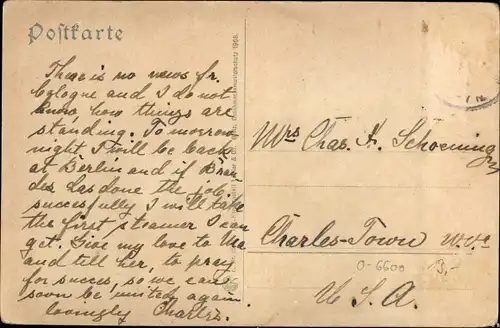 Postkarte
There is no news fr.
Cologne and I do not
know how things are
standing. To morrow
night I will be back
at Berlin and if Bran-
des has done the job
succesfully I will take
the first steamer I can
get. Give my love to Ma
and tell her, to pray
for succes, so we can
soon be united again
lovingly Charles.
Mrs Chas. H. Schoening
Charles-Town W.Va
0-6600 9,-
U.S.A.